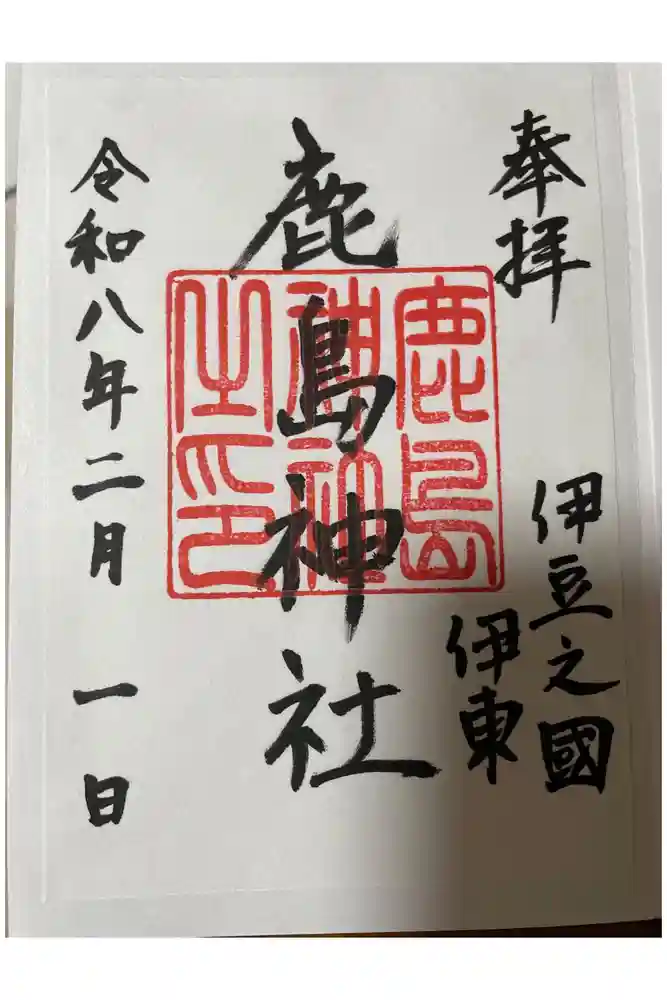 奉拝
伊豆之國
伊東
鹿島神社
鹿島
神社
之印
令和八年二月 一日